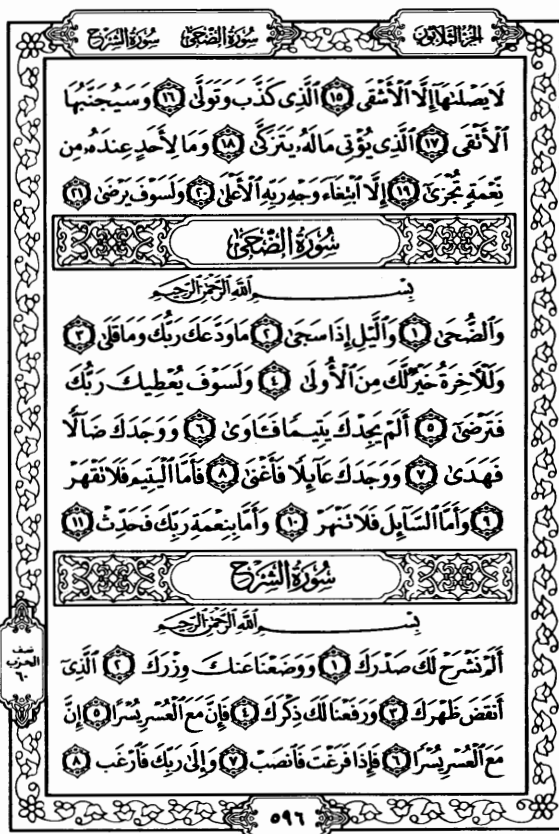 الجزء الثلاثون سورة الضحى سورة الشرح
لَا يَصْلَىٰهَآ إِلَّا ٱلْأَشْقَى ١٥ ٱلَّذِى كَذَّبَ وَتَوَلَّىٰ ١٦ وَسَيُجَنَّبُهَا
ٱلْأَتْقَى ١٧ ٱلَّذِى يُؤْتِى مَالَهُۥ يَتَزَكَّىٰ ١٨ وَمَا لِأَحَدٍ عِندَهُۥ مِن
نِّعْمَةٍ تُجْزَىٰٓ ١٩ إِلَّا ٱبْتِغَآءَ وَجْهِ رَبِّهِ ٱلْأَعْلَىٰ ٢٠ وَلَسَوْفَ يَرْضَىٰ ٢١
سُورَةُ الضُّحَى
بِسْمِ ٱللَّهِ ٱلرَّحْمَٰنِ ٱلرَّحِيمِ
وَٱلضُّحَىٰ ١ وَٱلَّيْلِ إِذَا سَجَىٰ ٢ مَا وَدَّعَكَ رَبُّكَ وَمَا قَلَىٰ ٣
وَلَلْـَٔاخِرَةُ خَيْرٌ لَّكَ مِنَ ٱلْأُولَىٰ ٤ وَلَسَوْفَ يُعْطِيكَ رَبُّكَ
فَتَرْضَىٰٓ ٥ أَلَمْ يَجِدْكَ يَتِيمًا فَـَٔاوَىٰ ٦ وَوَجَدَكَ ضَآلًّا
فَهَدَىٰ ٧ وَوَجَدَكَ عَآئِلًا فَأَغْنَىٰ ٨ فَأَمَّا ٱلْيَتِيمَ فَلَا تَقْهَرْ
٩ وَأَمَّا ٱلسَّآئِلَ فَلَا تَنْهَرْ ١٠ وَأَمَّا بِنِعْمَةِ رَبِّكَ فَحَدِّثْ ١١
سُورَةُ الشَّرْحِ
بِسْمِ ٱللَّهِ ٱلرَّحْمَٰنِ ٱلرَّحِيمِ
أَلَمْ نَشْرَحْ لَكَ صَدْرَكَ ١ وَوَضَعْنَا عَنكَ وِزْرَكَ ٢ ٱلَّذِىٓ
أَنقَضَ ظَهْرَكَ ٣ وَرَفَعْنَا لَكَ ذِكْرَكَ ٤ فَإِنَّ مَعَ ٱلْعُسْرِ يُسْرًا ٥ إِنَّ
مَعَ ٱلْعُسْرِ يُسْرًا ٦ فَإِذَا فَرَغْتَ فَٱنصَبْ ٧ وَإِلَىٰ رَبِّكَ فَٱرْغَب ٨
نصف
الحزب
٦٠
٥٩٦